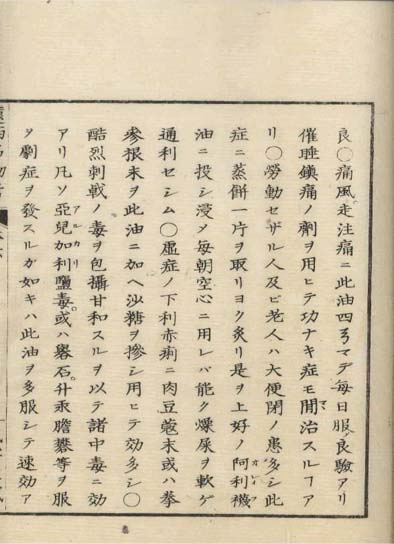 良〇痛風走注痛ニ此油四弓マデ毎日服良驗アリ
催睡鎮痛ノ劑ヲ用ヒテ功ナキ症モ間マ治スルコア
リ〇勞動セザル人及ビ老人ハ大便閉ノ患多シ此
症ニ蒸餅一片ヲ取リヨク炙リ是ヲ上好ノ阿利襪オレイフ
油ニ投シ浸メ毎朝空心ニ用レバ能ク燥屎ヲ軟ゲ
通利セシム〇虛症ノ下利赤痢ニ肉豆蔲末或ハ拳
參根末ヲ此油ニ加ヘ沙糖ヲ摻シ用ヒテ効多シ〇
酷烈刺戟ノ毒ヲ包攝甘和スルヲ以テ諸中毒ニ効
アリ凡ソ亞兒加利アルカリ鹽毒。或ハ礜石。升汞膽礬等ヲ服
ヲ劇症ヲ發スルガ如キハ此油ヲ多服シテ速効ア